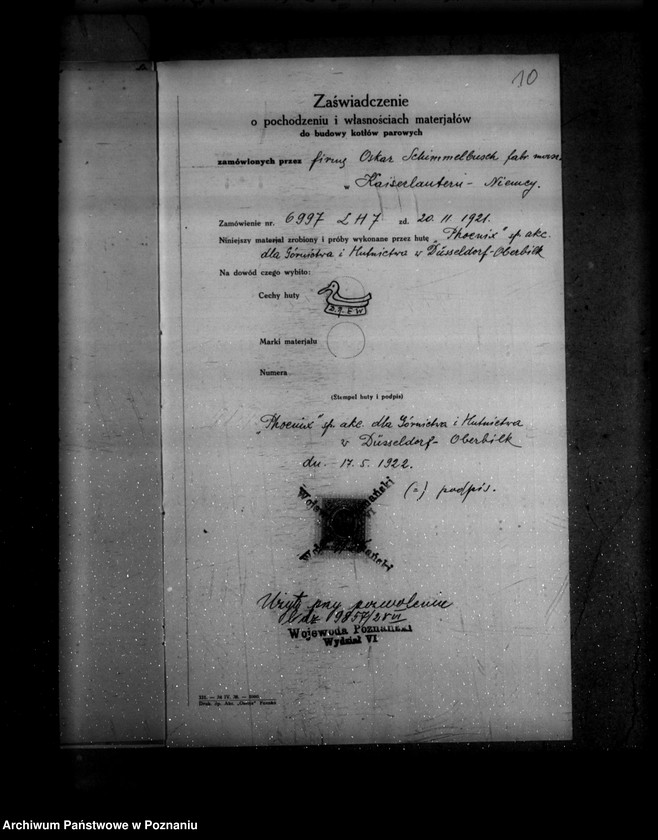 10
Zaświadczenie
o pochodzeniu i własnościach materjałów
do budowy kotłów parowych
zamówionych przez firmę Oskar Schimmelbusch fabr. masz.
w Kaiserlautern - Niemcy.
Zamówienie nr. 6997 L H 7 zd. 20. 11. 1921.
Niniejszy materjał zrobiony i próby wykonane przez hutę „Phoenix" sp. akc.
dla Górnictwa i Hutnictwa w Düsseldorf-Oberbilk
Na dowód czego wybito:
Cechy huty
Marki materjału
Numera
(Stempel huty i podpis)
„Phoenix" sp. akc. dla Górnictwa i Hutnictwa
w Düsseldorf- Oberbilk
dn. 17. 5. 1922.
(-) podpis.
Wojewoda Poznański
VI
Użyto przy pozwoleniu
Wojewoda Poznański
Wydział VI
Archiwum Państwowe w Poznaniu